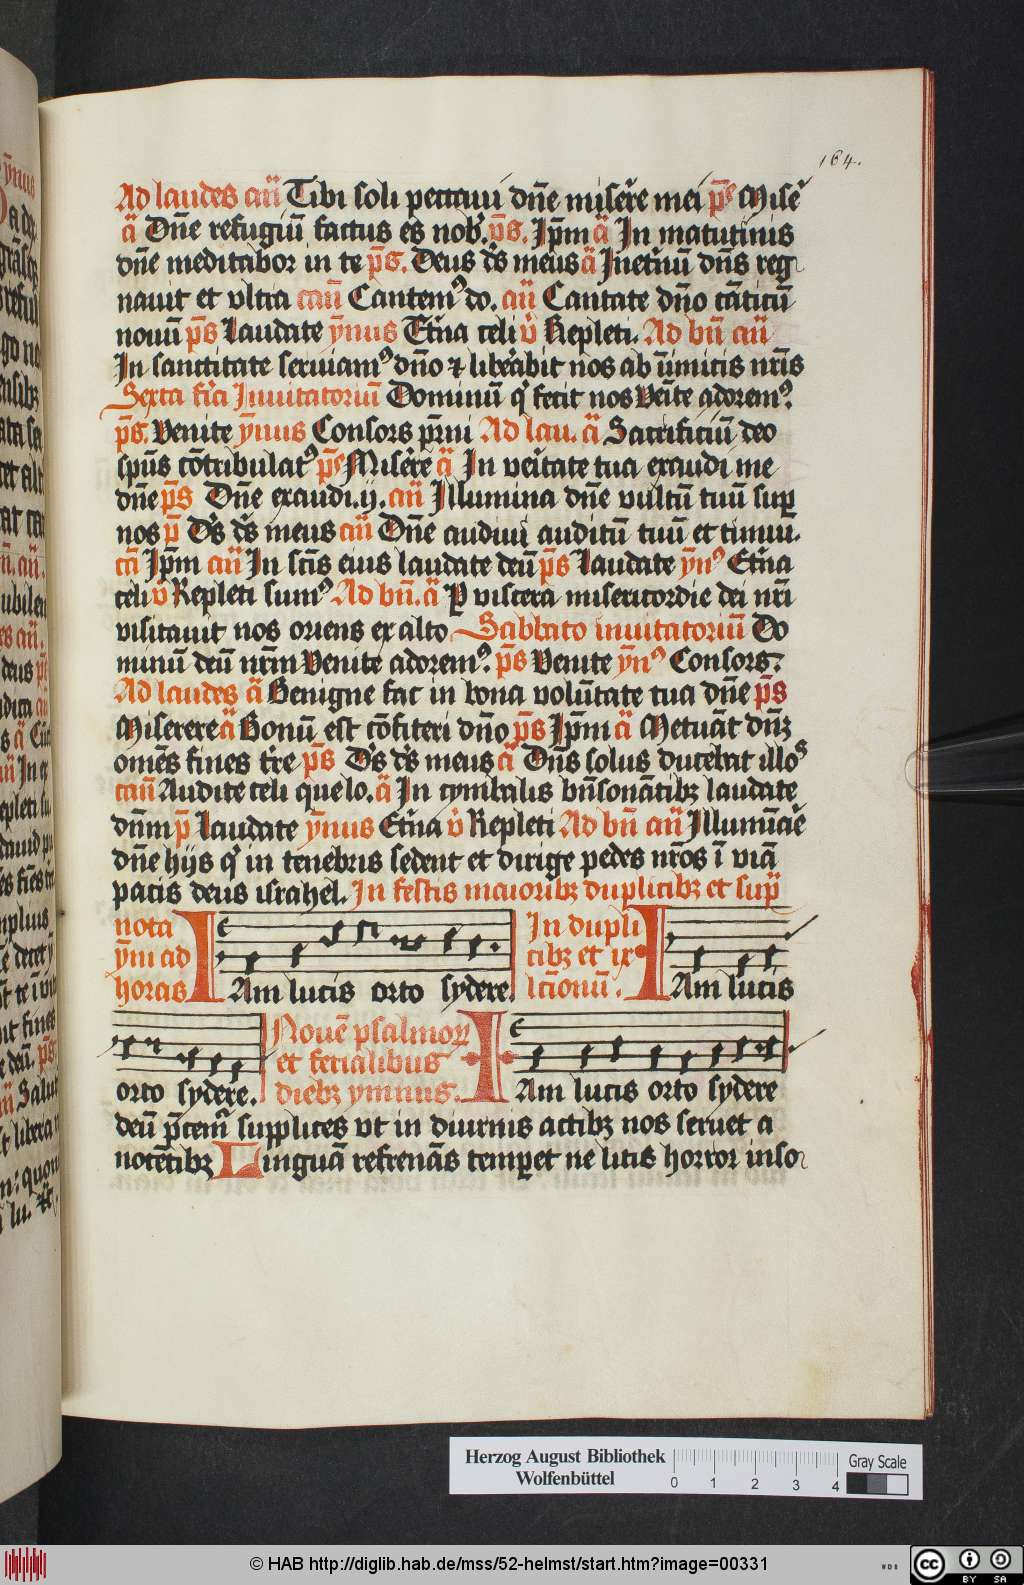 164.
Ad laudes añ Tibi soli peccaui dn̄e miserͤe mei ps̄ Miserͤ
ā Dn̄e refugiū factus es nobˢ. ps̄. Ip̄m ā In matutinis
dn̄e meditabor in te ps̄. Deus ds̄ meus ā Inet̄nū dn̄s reg
nauit et vltra cañ Cantemꝰ do. añ Cantate dn̄o cāticū
nouū ps̄ Laudate ȳnus Et̄na celi v̄ Repleti. Ad bn̄ añ
In sanctitate seruiamꝰ dn̄o ⁊ liberabit nos ab inimicis nr̄is
Sexta fīa Inuitatoriū Dominū qͥ fecit nos Veīte adoremꝰ.
ps̄. Venite ȳmus Consors pr̄ni Ad lau. ā Sacrificiū deo
sps̄ cōtribulatꝰ ps̄ Miserͤe ā In veritate tua exaudi me
dn̄e ps̄ Dn̄e exaudi. ij. añ Illumina dn̄e vultū tuū sup̱
nos p̄ Ds̄ ds̄ meus cañ Dn̄e audiui auditū tuū et timui.
cā Ip̄m añ In sc̄is eius laudate deū ps̄ Laudate ȳnꝰ Et̄na
celi v̄ Repleti sumꝰ Ad bn̄. ā P̱ viscera misericordie dei nr̄i
visitauit nos oriens ex alto Sabbato inuitatoriū Do
minū deū nr̄m Venite adoremꝰ. ps̄ Venite ȳnꝰ Consors.
Ad laudes ā Benigne fac in bona volūtate tua dn̄e ps̄
Miserere ā Bonū est cōfiteri dn̄o ps̄ Ip̄m ā Metuāt dn̄ꝫ
omēs fines tr̄e ps̄ Ds̄ ds̄ meus ā Dn̄s solus ducebat illoˢ
cañ Audite celi que lo. ā In cymbalis bn̄sonātibꝫ laudate
dn̄m p̄ Laudate ȳnus Et̄na v̄ Repleti Ad bn̄ añ Illumīaͤe
dn̄e hijs qͥ in tenebris sedent et dirige pedes nr̄os ī viā
pacis deus israhel. In festis maioribꝫ duplicibꝫ et sup̱
nota
ȳni ad
horas
IAm lucis orto sydere.
In dupli
cibꝫ et ix
lc̄ionū.
IAm lucis
orto sydere.
Nouē psalmoꝝ
et ferialibus
diebꝫ ymnus.
IAm lucis orto sydere
deū p̄cemͬ supplices vt in diurnis actibꝫ nos seruet a
nocētibꝫ Linguā refrenās temp̱et ne litis horror inso
Herzog August Bibliothek
Wolfenbüttel
0 1 2 3 4
Gray Scale
© HAB http://diglib.hab.de/mss/52-helmst/start.htm?image=00331
cc BY SA